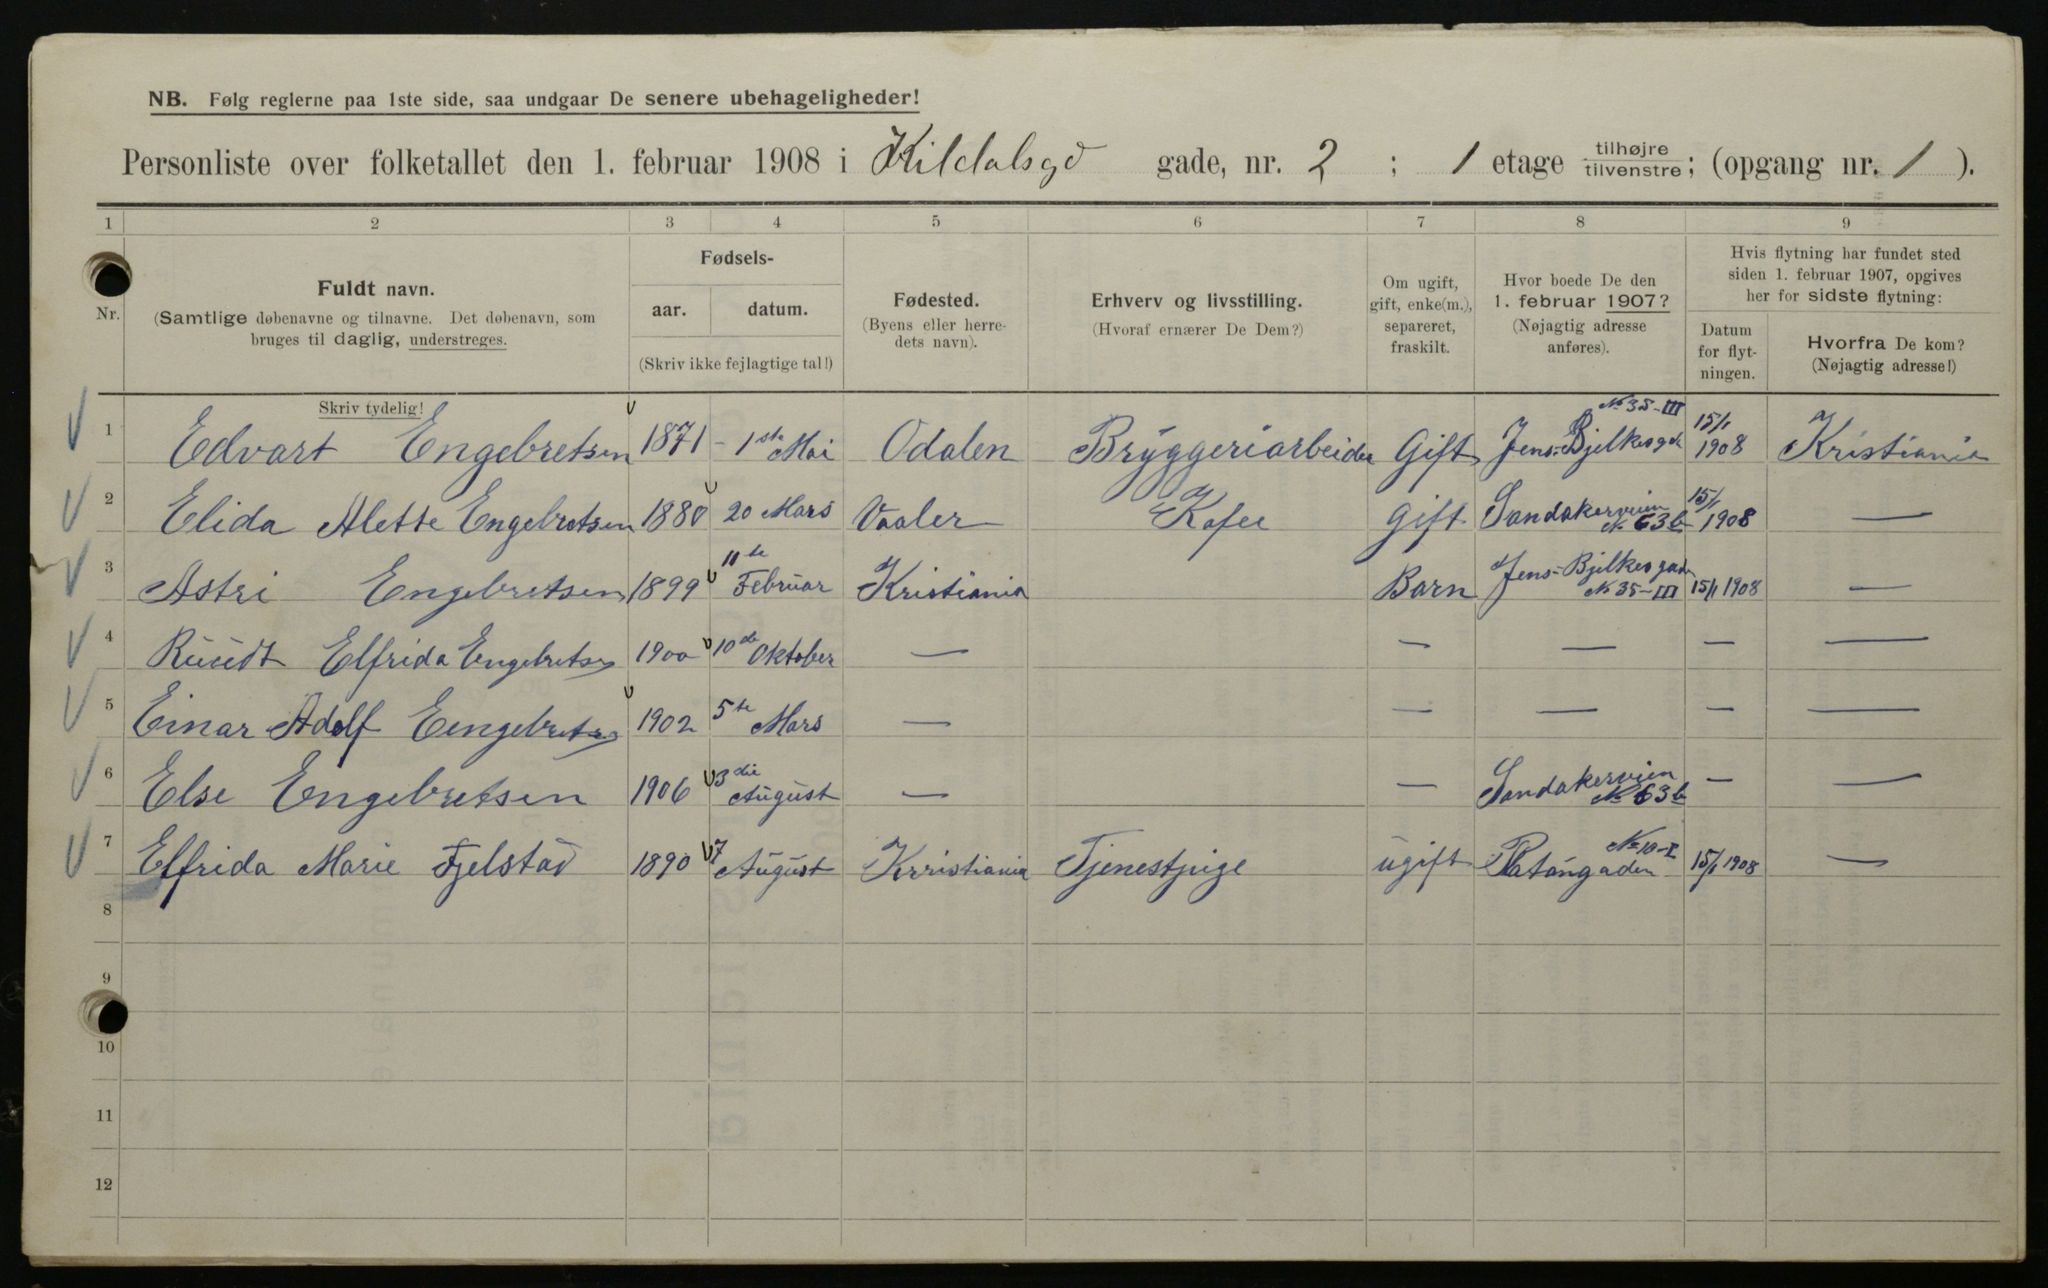 NB. Følg reglerne paa 1ste side, saa undgaar De senere ubehageligheder!
Personliste over folketallet den 1. februar 1908 i Kildalsgd gade, nr. 2 ; 1 etage tilhøjre/tilvenstre; (opgang nr. 1 ).
1 2 3 4 5 6 7 8 9
Nr.
Fuldt navn.
(Samtlige døbenavne og tilnavne. Det døbenavn, som
bruges til daglig, understreges.
Skriv tydelig!
Fødsels-
aar. datum.
(Skriv ikke fejlagtige tal!)
Fødested.
(Byens eller herre-
dets navn).
Erhverv og livsstilling.
(Hvoraf ernærer De Dem?)
Om ugift,
gift, enke(m.),
separeret,
fraskilt.
Hvor boede De den
1. februar 1907?
(Nøjagtig adresse
anføres).
Hvis flytning har fundet sted
siden 1. februar 1907, opgives
her for sidste flytning:
Datum
for flyt-
ningen.
Hvorfra De kom?
(Nøjagtig adresse!)
1 Edvart Engebretsen 1871 - 1ste Mai Odalen Bryggeriarbeider Gift Jens-Bjelkesgd No 35-III 15/1 1908 Kristiania
2 Elida Alette Engebretsen 1880 20 Mars Vaaler Kafee Gift Sandakerveien No 63b 15/1 1908 —
3 Astri Engebretsen 1899 11te Februar Kristiania Barn Jens-Bjelkesgaden No 35-III 15/1 1908 —
4 Elfrida Engebretsen 1900 10de Oktober — — — — —
5 Einar Adolf Eengebretsen 1902 5te Mars — — — — —
6 Else Engebretsen 1906 3die August — — Sandakerveien No 63b — —
7 Elfrida Marie Fjelstad 1890 7 August Krristiania Tjenestpige ugift No 10-I 15/1 1908 —
8
9
10
11
12